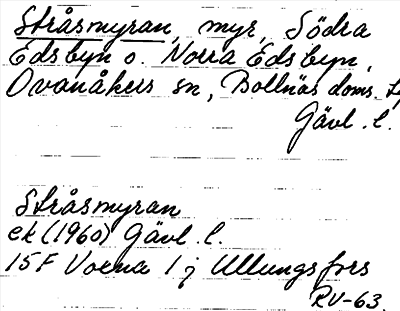 Stråsmyran, myr, Södra
Edsbyn o. Norra Edsbyn,
Ovanåkers sn, Bollnäs doms.
Gävl. l.
Stråsmyran
ek (1960) Gävl. l.
15F Voxna 1 j Ullungsfors
RV-63.